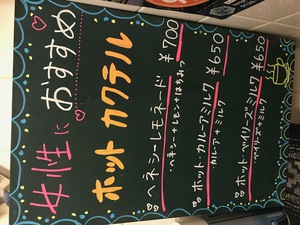 女性に おすすめ
ホット カクテル
ヘネシーレモネード ¥700
・ヘネシー+レモン+はちみつ
ホット・カルーアミルク ¥650
・カルーア+ミルク
ホット・ベイリーズミルク ¥650
・ベイリーズ+ミルク